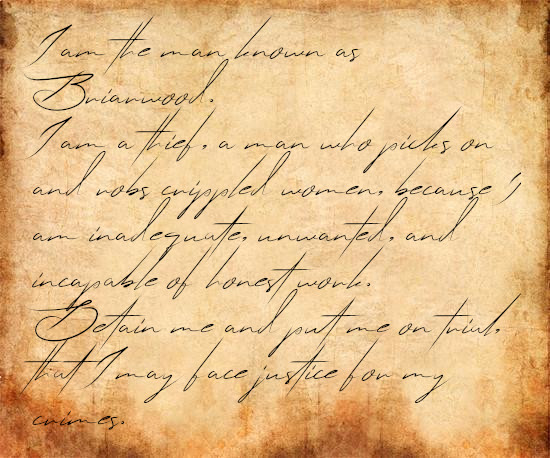 I am the man known as
Briarwood.
I am a thief, a man who picks on
and robs crippled women, because I
am inadequate, unwanted, and
incapable of honest work.
Detain me and put me on trial,
that I may face justice for my
crimes.